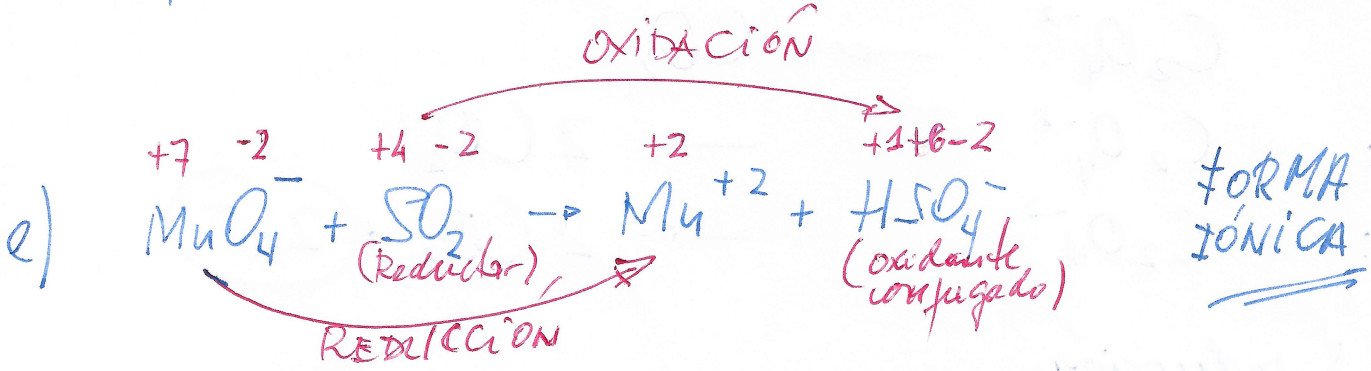 OXIDACIÓN
+7 -2 +4 -2 +2 +1+6-2
e) MnO₄⁻ + SO₂ → Mn⁺² + HSO₄⁻ FORMA
(Reductor) (oxidante IÓNICA
conjugado)
REDUCCIÓN